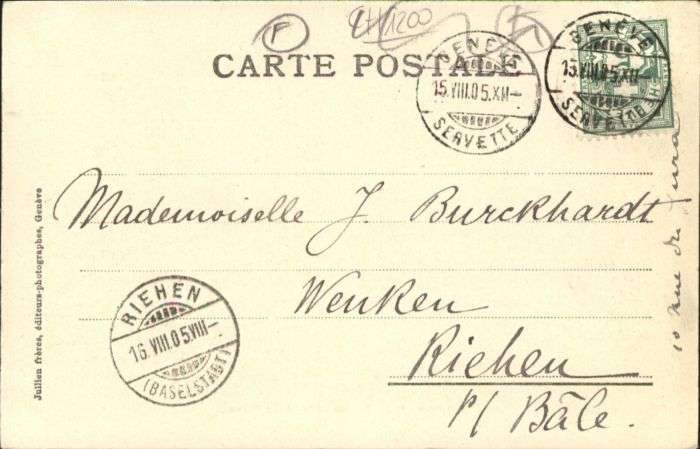 F
1200
CARTE POSTALE
GENÈVE
15.VIII.05.XII—
SERVETTE
GENÈVE
15.VIII.05.XII—
SERVETTE
Mademoiselle J. Burckhardt
Wenken
Riehen
p/ Bâle.
RIEHEN
16.VIII.05.VIII—
(BASELSTADT)
Jullien frères, éditeurs-photographes, Genève
10 rue du Jura